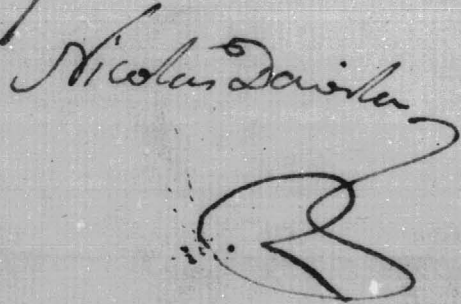 Nicolas Davila